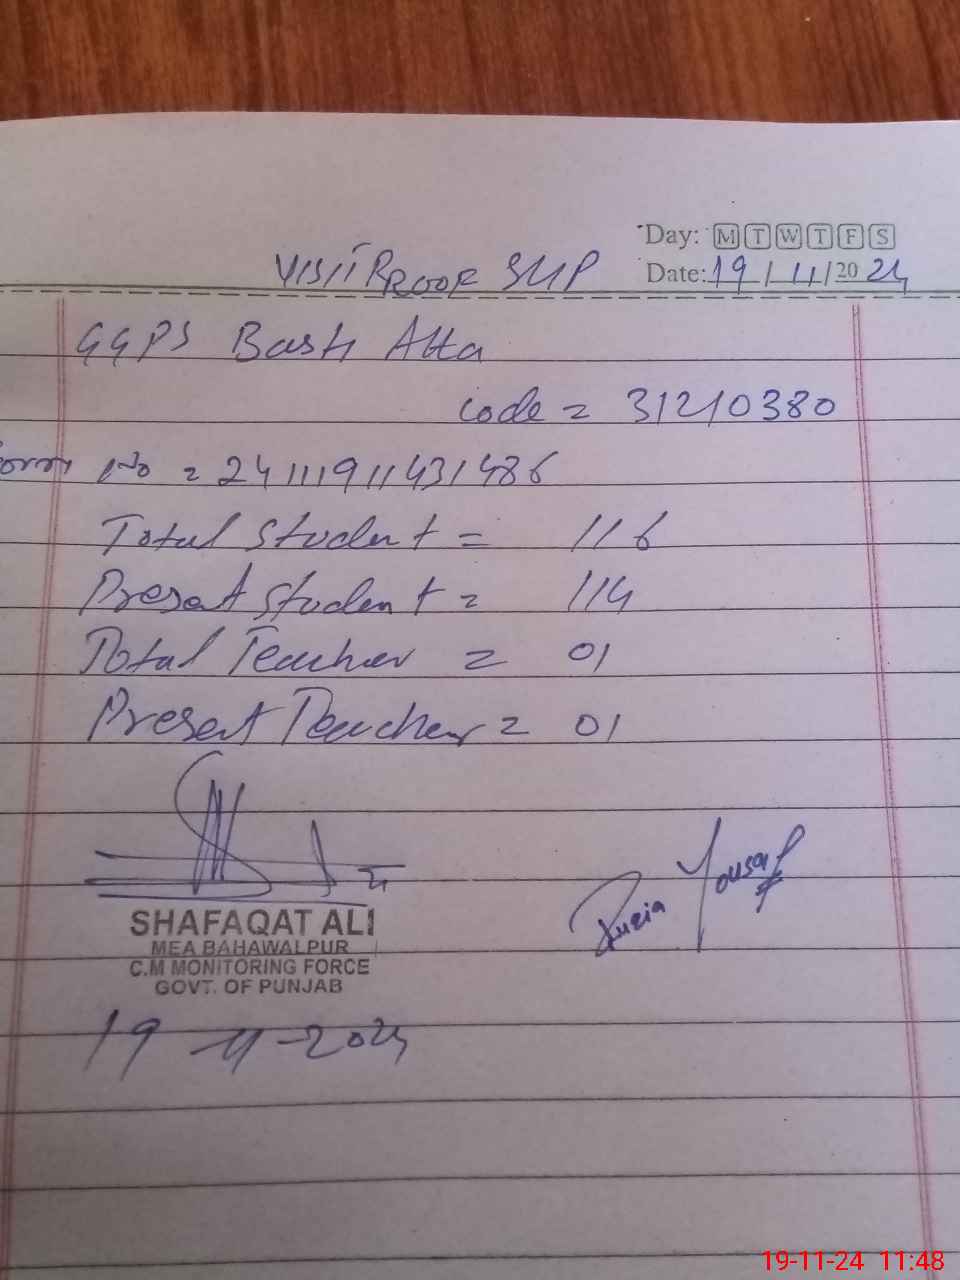 Day: M T W T F S
VISIT PROOF SLIP
Date: 19/11/2024
GGPS Basti Atta
code = 31210380
Form No = 24111911431486
Total Student = 116
Present Student = 114
Total Teacher = 01
Present Teacher = 01
Yousaf
SHAFAQAT ALI
MEA BAHAWALPUR
C.M MONITORING FORCE
GOVT. OF PUNJAB
19-11-2024
19-11-24 11:48